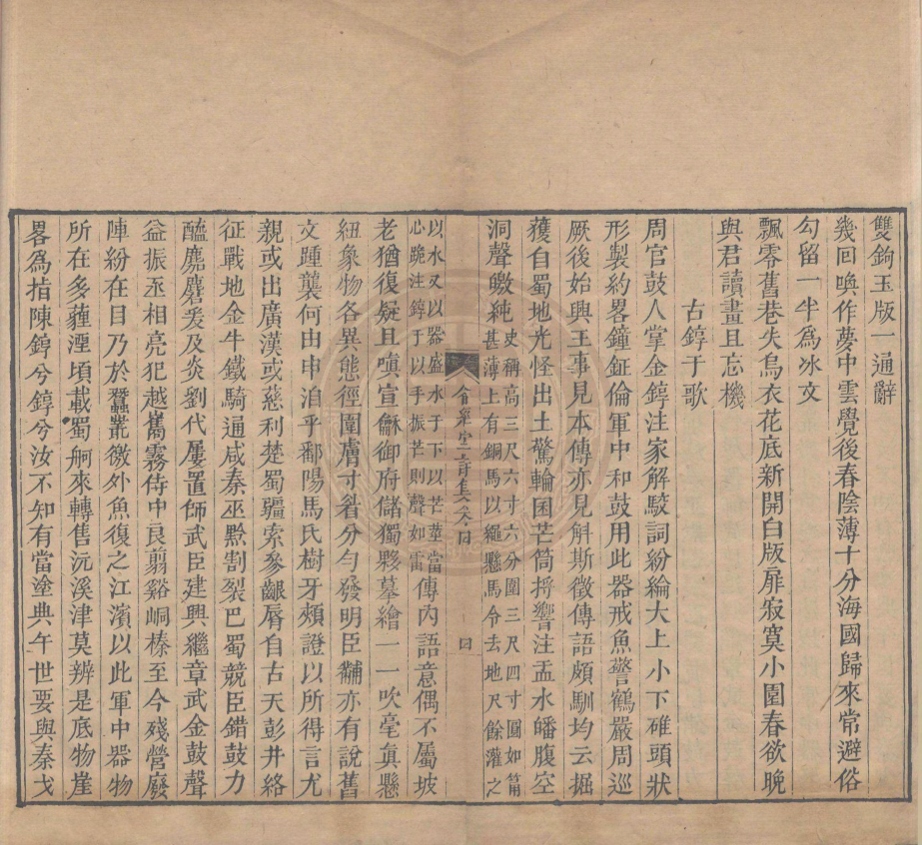 雙鉤玉版一通辭
幾回喚作夢中雲覺後春陰薄十分海國歸來常避俗
勾留一半為冰文
飄零舊巷失烏衣花底新開白版扉寂寞小園春欲晚
與君讀畫且忘機
古錞于歌
周官鼓人掌金錞注家解駮詞紛綸大上小下碓頭狀
形製約畧鐘鉦倫軍中和鼓用此器戒魚警鶴嚴周巡
厥後始興王事見本傳亦見斛斯徵傳語頗馴均云掘
獲自蜀地光怪出土驚輪囷芒筒捋響注盂水皤腹空
洞聲皦純史稱高三尺六寸六分圍三尺四寸圓如筩
甚薄上有銅馬以繩懸馬令去地尺餘灌之
以水又以器盛水于下以芒莖當
心跪注錞于以手振芒則聲如雷傳內語意偶不屬坡
老猶復疑且嗔宣龢御府儲獨夥摹繪一一吹毫真懸
紐象物各異態徑圍膚寸省分勻發明臣黼亦有說舊
文踵襲何由申洎乎鄱陽馬氏樹牙頰證以所得言尤
親或出廣漢或慈利楚蜀疆索參齦脣自古天彭井絡
征戰地金牛鐵騎通咸秦巫黔割裂巴蜀競臣錯鼓力
醯麃麏爰及炎劉代屢置帥武臣建興繼章武金鼓聲
益振丞相亮犯越巂霧侍中良翦谿峒榛至今殘營廢
陣紛在目乃於蠶叢徼外魚復之江濱以此軍中器物
所在多薶湮頃載蜀舸來轉售沅溪津莫辨是底物崖
畧為指陳錞兮錞兮汝不知有當塗典午世要與秦戈